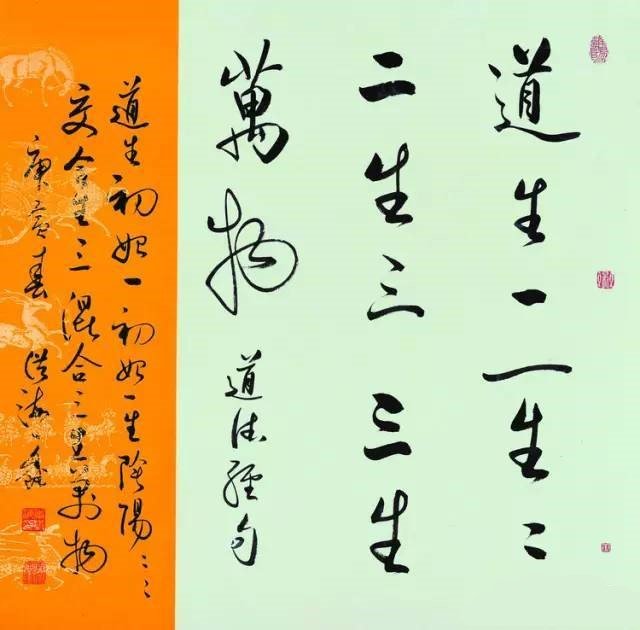 道生一一生二
二生三三生
萬物 道德經句
道生初始一初始一生陰陽
交合生三混合三萬物
庚寅春洪海